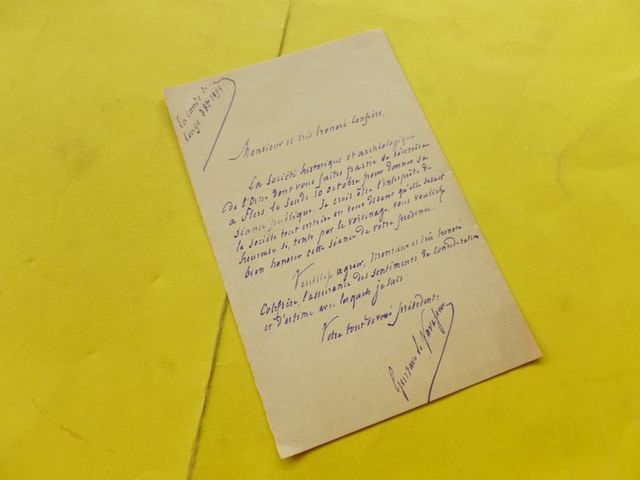 La Lande de
Lougé 3 8bre 1895
Monsieur et très honoré Confrère,
La Société historique et archéologique
de l'Orne dont vous faites partie se réunira
à Flers le jeudi 10 octobre pour donner sa
séance publique. Je crois être l'interprète de
la Société tout entière en vous disant qu'elle serait
heureuse si, tenté par le voisinage vous vouliez
bien honorer cette séance de votre présence.
Veuillez agréer, Monsieur et très honoré
Confrère, l'assurance des sentiments de considération
et d'estime avec lesquels je suis
Votre tout dévoué président.
Gustave le Vavasseur